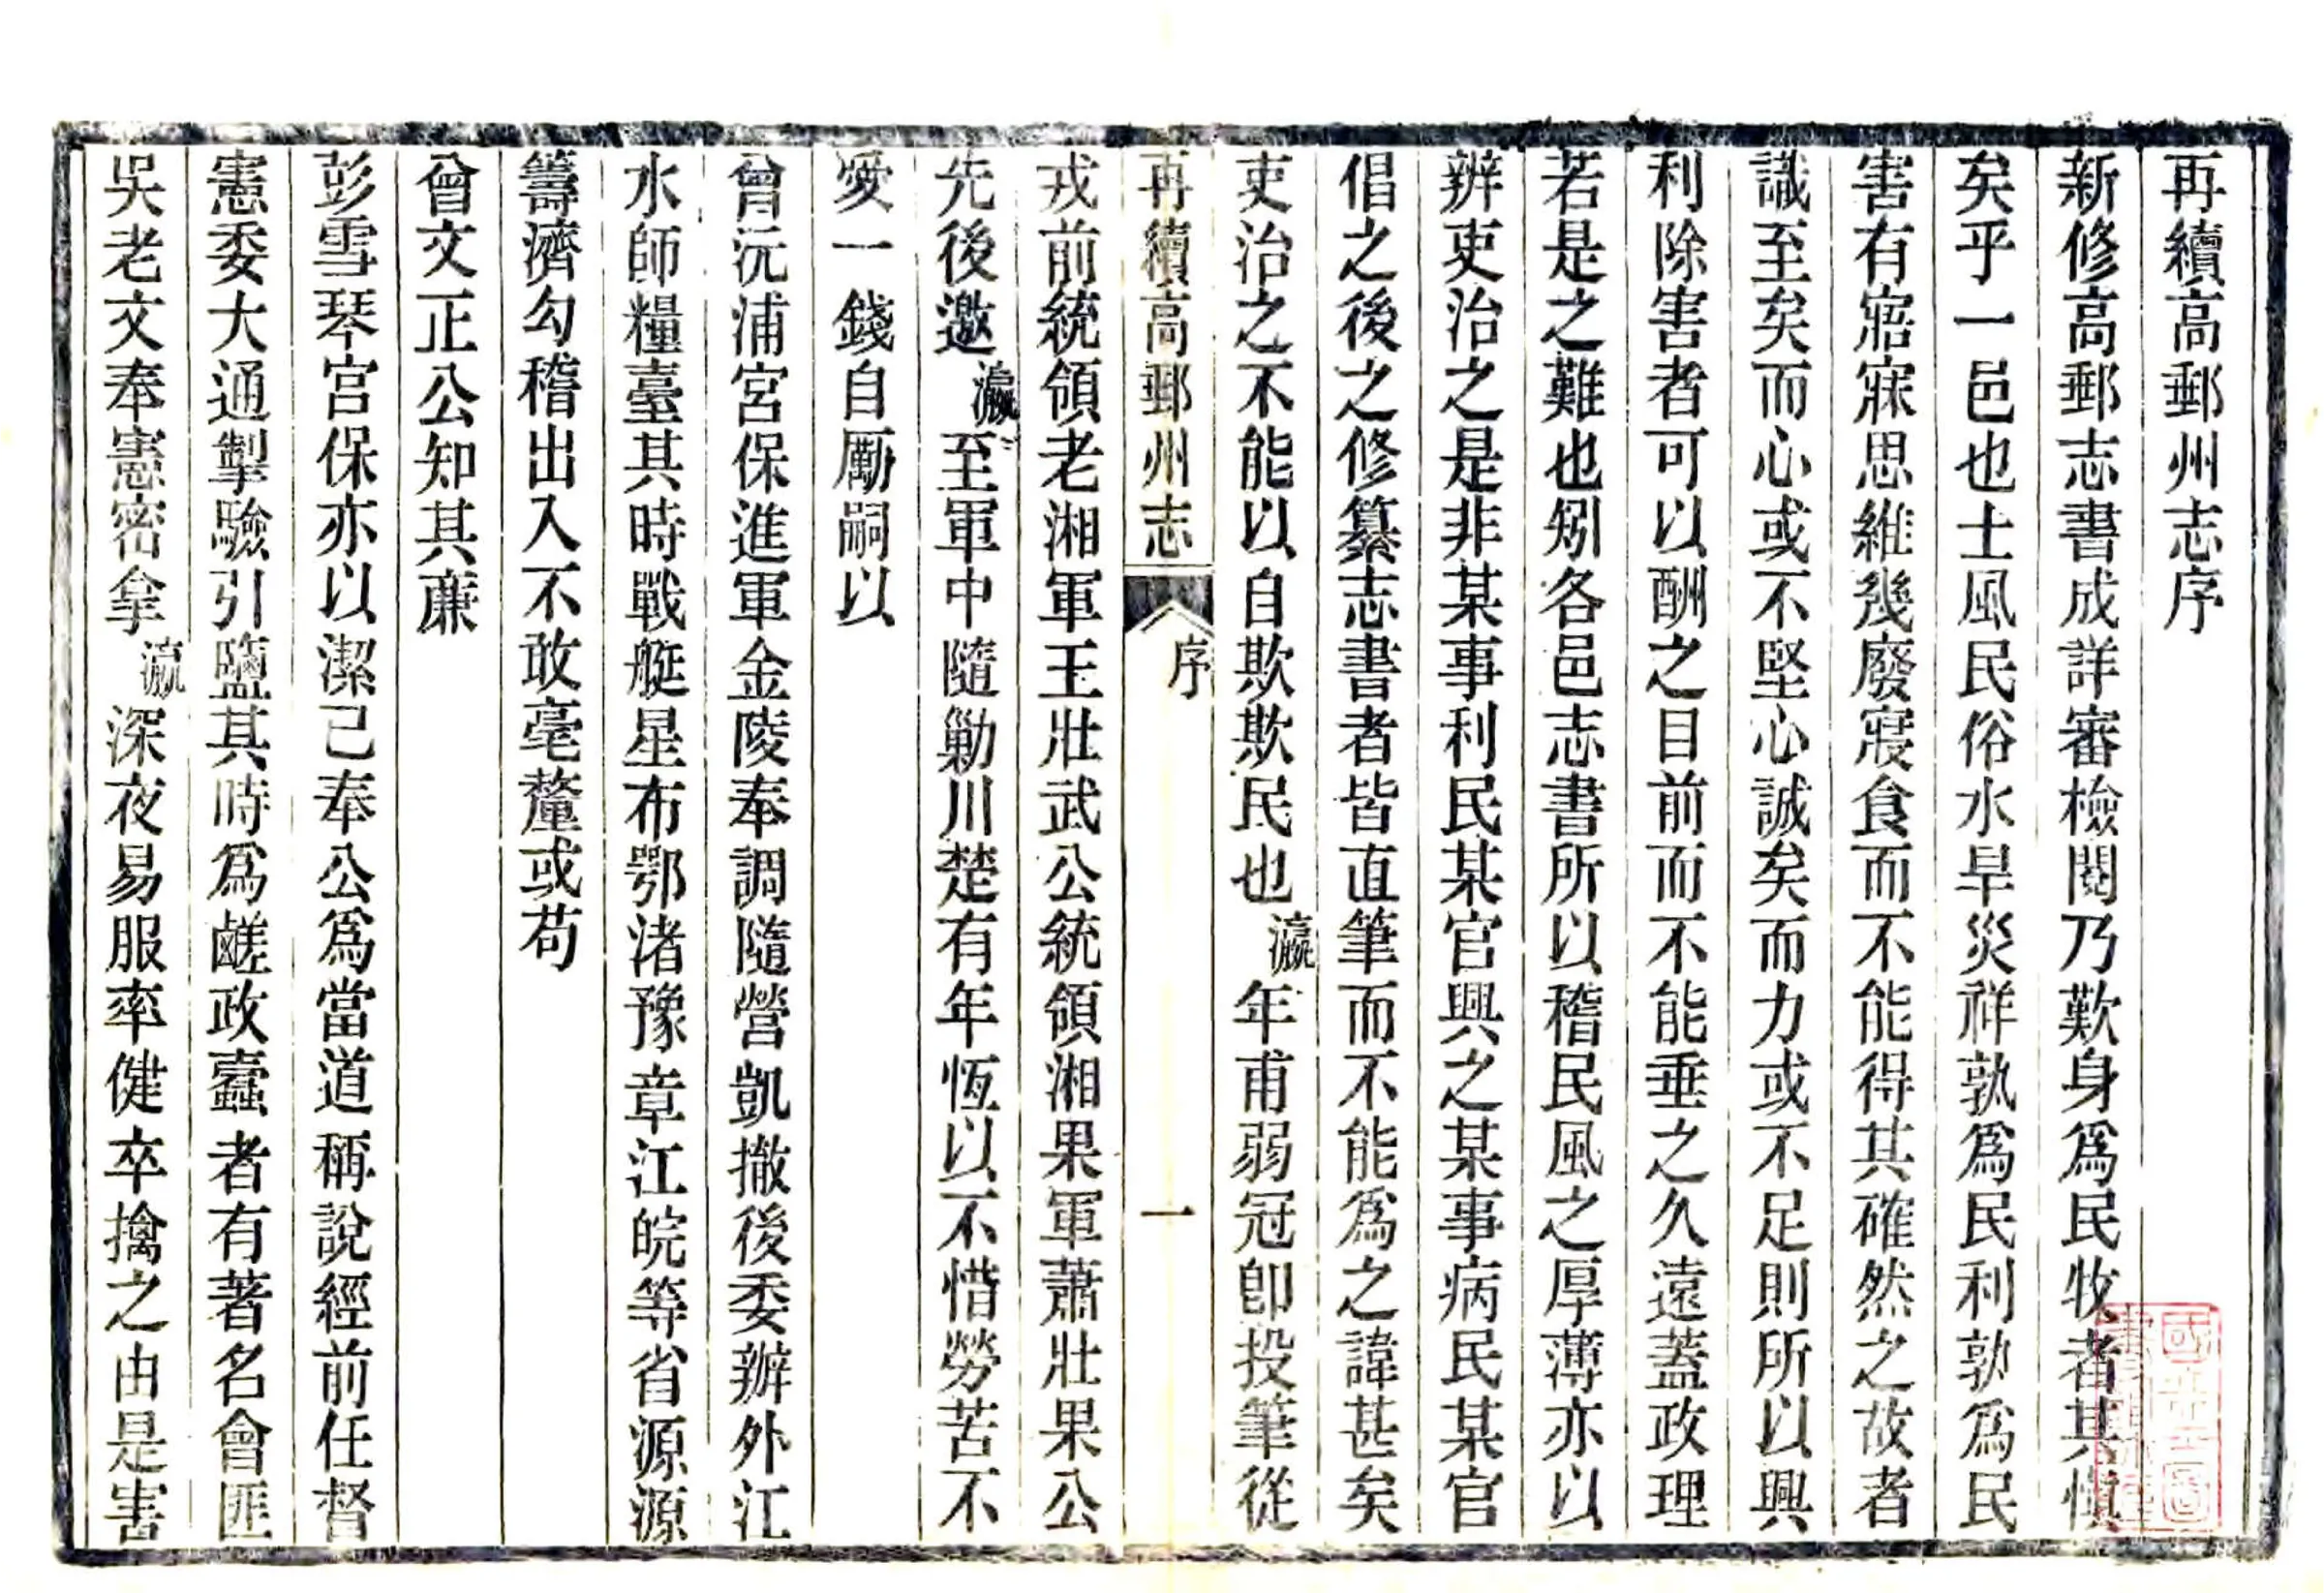 再續高郵州志序
新修高郵志書成詳審檢閱乃歎身爲民牧者其愼
矣乎一邑也士風民俗水旱災祥孰爲民利孰爲民
害有寤寐思維幾廢寢食而不能得其確然之故者
識至矣而心或不堅心誠矣而力或不足則所以興
利除害者可以酬之目前而不能垂之久遠蓋政理
若是之難也矧各邑志書所以稽民風之厚薄亦以
辨吏治之是非某事利民某官興之某事病民某官
倡之後之修纂志書者皆直筆而不能爲之諱甚矣
吏治之不能以自欺欺民也瀛年甫弱冠卽投筆從
再續高郵州志
序
一
戎前統領老湘軍王壯武公統領湘果軍蕭壯果公
先後邀瀛至軍中隨勦川楚有年恆以不惜勞苦不
愛一錢自勵嗣以
曾沅浦宮保進軍金陵奉調隨營凱撤後委辦外江
水師糧臺其時戰艇星布鄂渚豫章江皖等省源源
籌濟勾稽出入不敢毫釐或苟
曾文正公知其廉
彭雪琴宮保亦以潔己奉公爲當道稱說經前任督
憲委大通掣驗引鹽其時爲鹺政蠹者有著名會匪
吳老文奉憲密拿瀛深夜易服率健卒擒之由是害